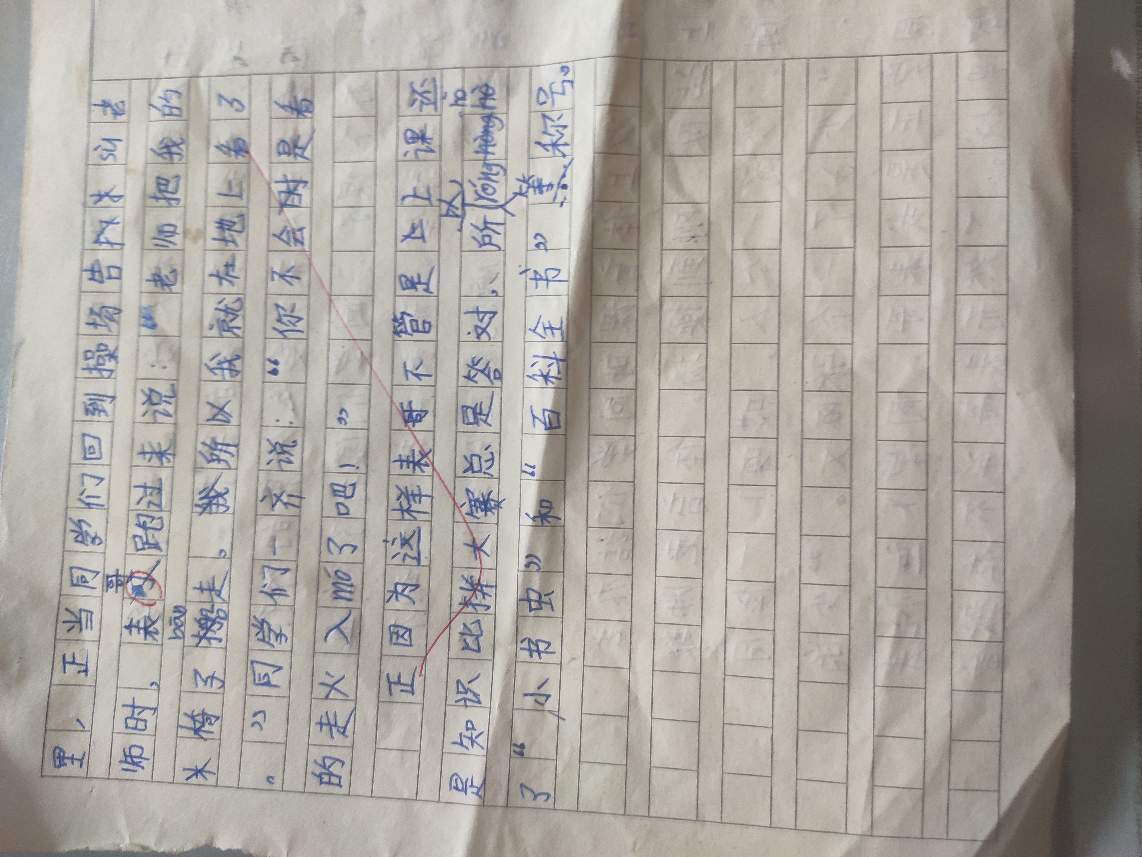 里，正当同学们回到操场告网米sù老
师时，表哥跑过来说：“老师把我的
米椅子搬走，所以我就在地上看了
。”同学们一齐说：“你不会时是看
的走火入mó了吧！”
正因为这样表哥不管是上课还
是知识比拼大赛总是答对、所以róng hòng hò
了“小书虫”和“百科全书”等称号。